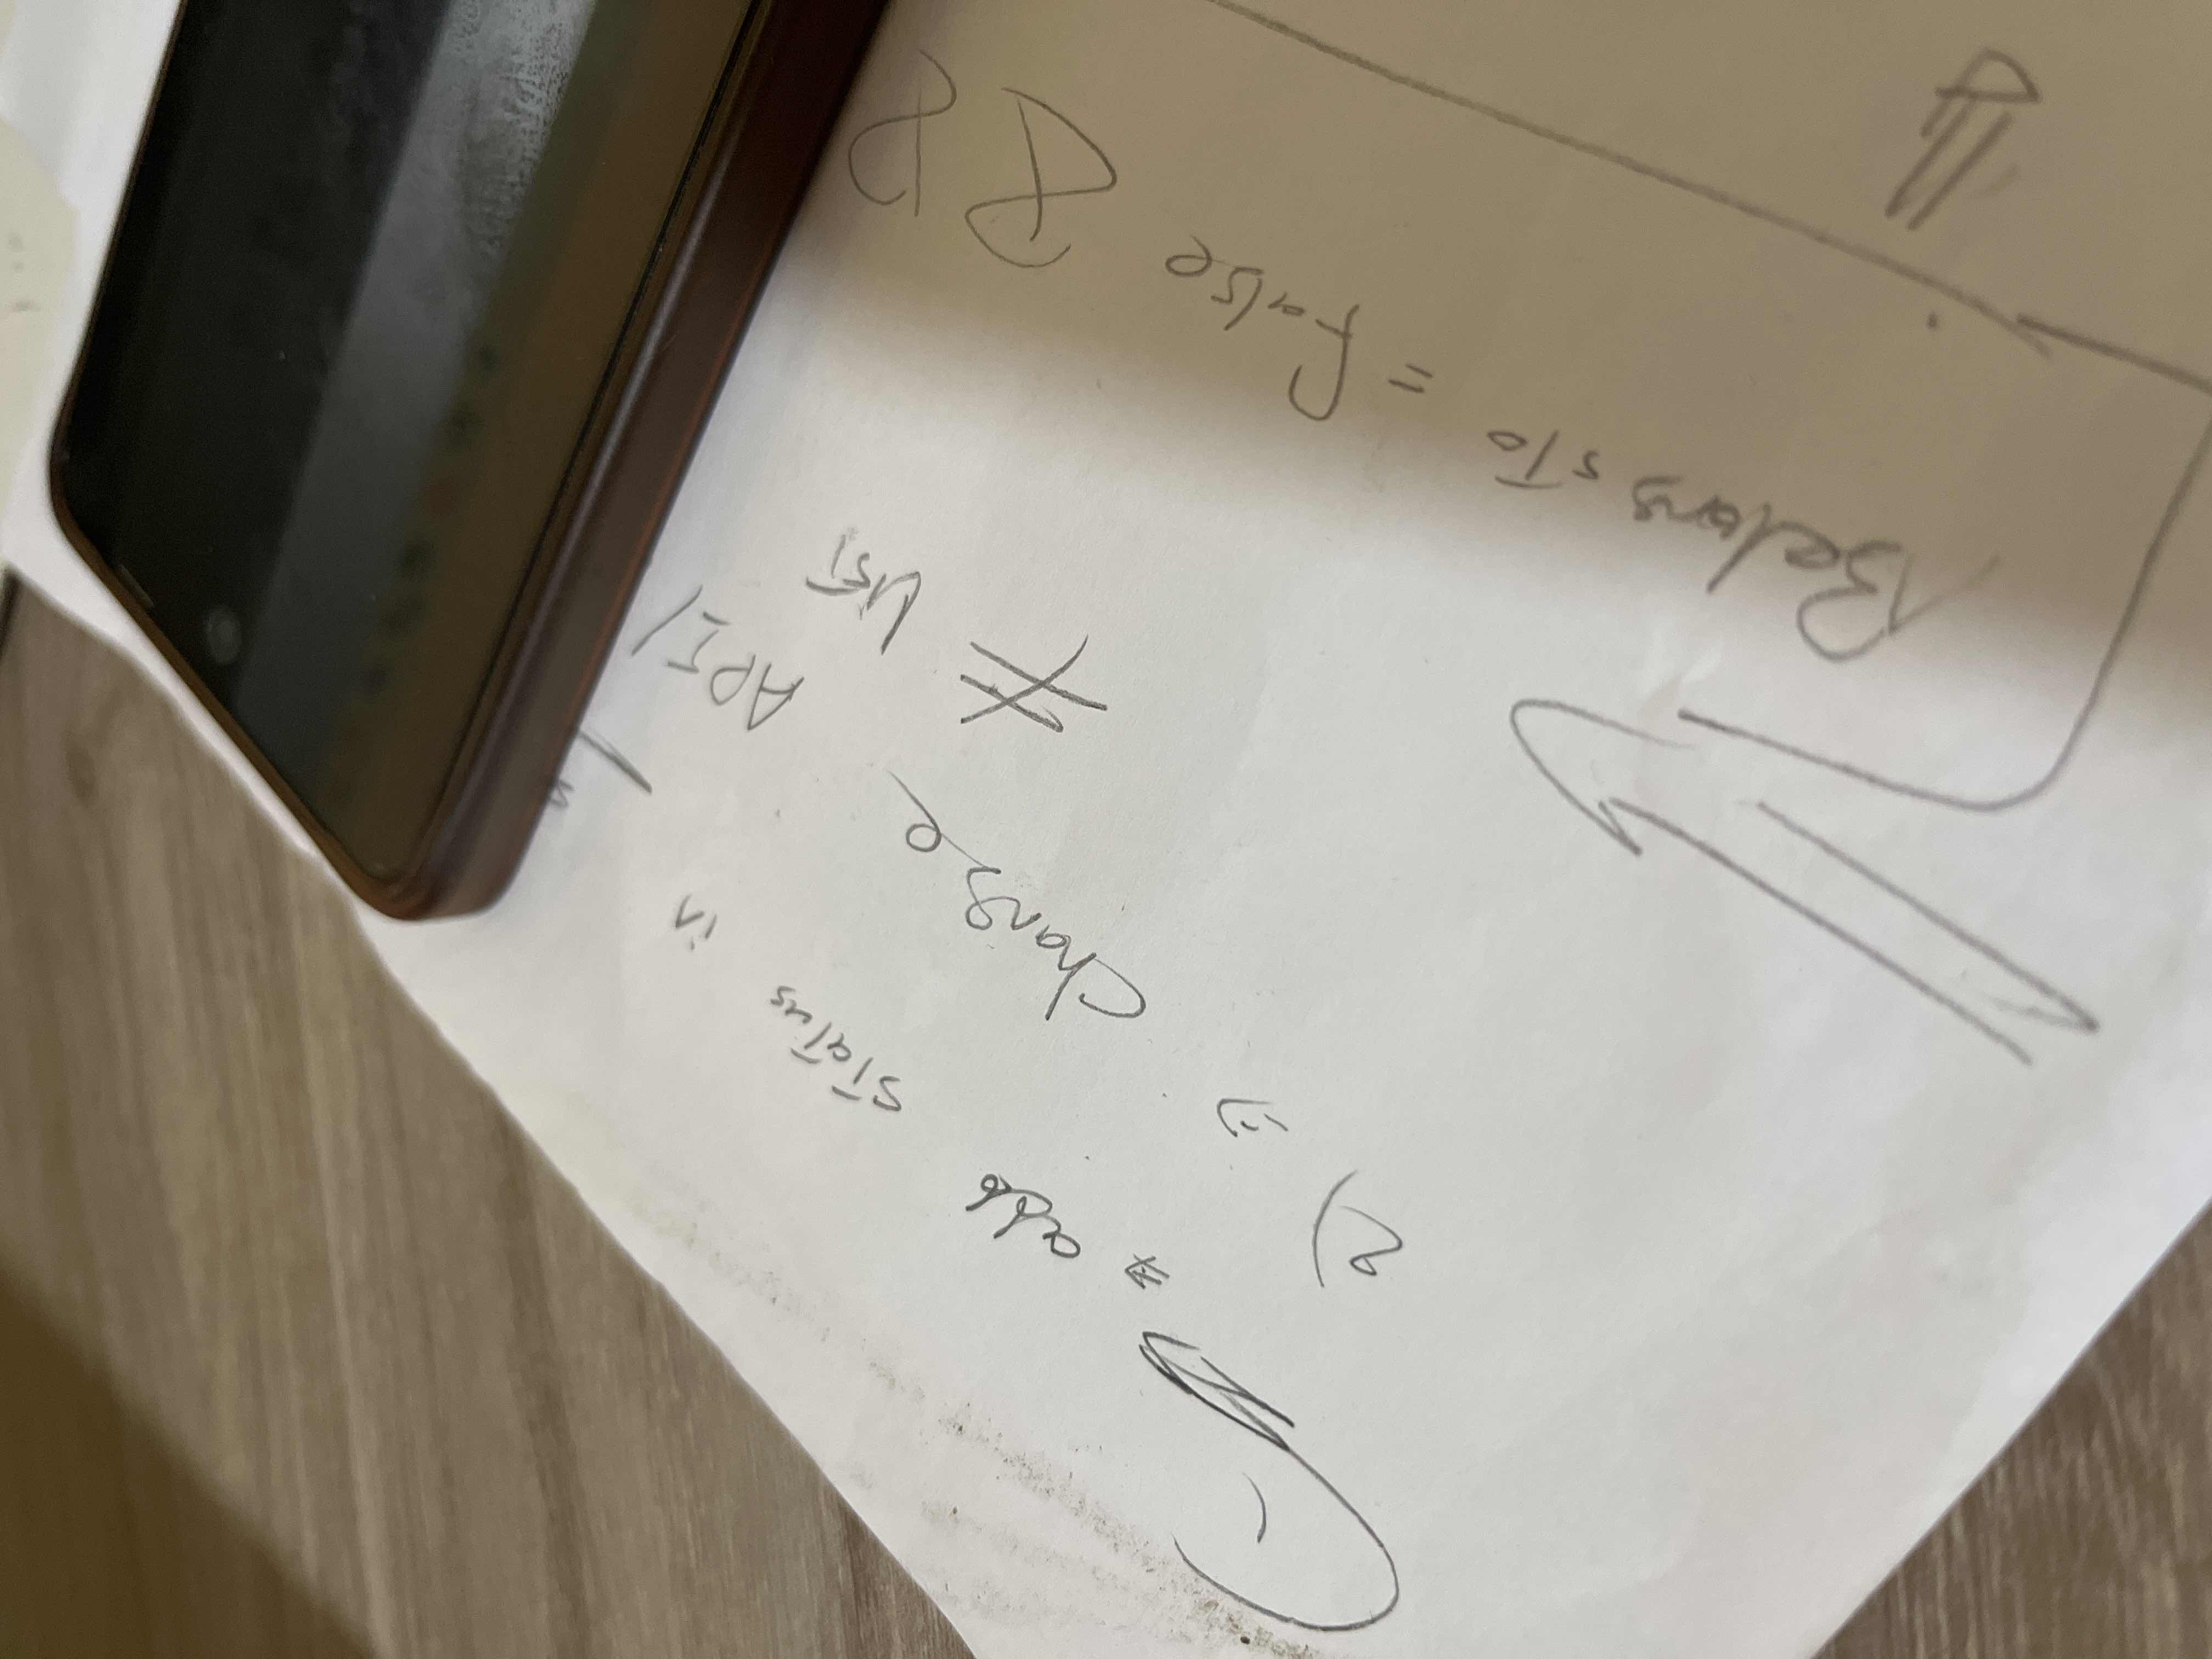 ⇒ add status in
2) ⇒ change API/
* list
Belongsto = false &&